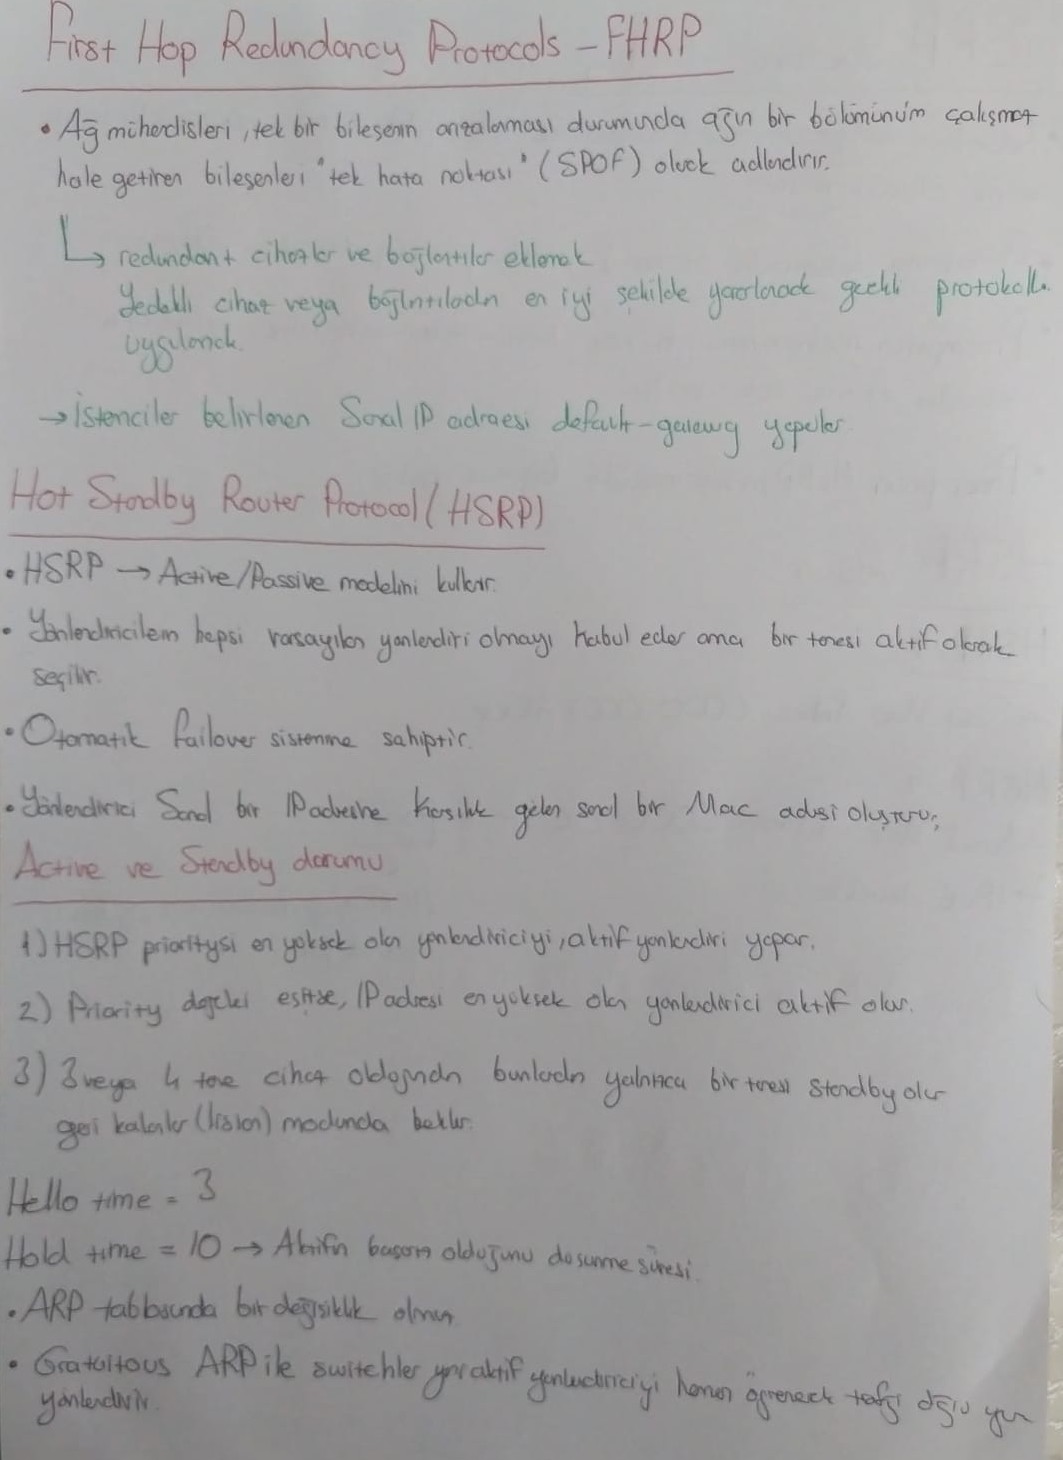 First Hop Redundancy Protocols - FHRP
• Ağ mühendisleri, tek bir bileşenin arızalanması durumunda ağın bir bölümünüm çalışmaz
hale getiren bileşenleri "tek hata noktası" (SPOF) olarak adlandırır.
↳ redundant cihazlar ve bağlantılar eklemek
Yedekli cihaz veya bağlantılardan en iyi şekilde yararlanarak gerekli protokoll.
uygulanarak.
→ İstemciler belirlenen Sanal IP adraesi default-gateway yaparlar.
Hot Standby Router Protocol (HSRP)
• HSRP → Active/Passive modelini kullanır.
• Yönlendiricilerin hepsi varsayılan yönlendiri olmayı kabul eder ama bir tanesi aktif olarak
seçilir.
• Otomatik failover sistemine sahiptir.
• Yönlendirici Sanal bir IP adresine karşılık gelen sanal bir Mac adresi oluşturur;
Active ve Standby durumu
1) HSRP prioritysi en yüksek olan yönlendiriciyi, aktif yönlendiri yapar.
2) Priority değeleri eşitse, IP adresi en yüksek olan yönlendirici aktif olur.
3) 3 veya 4 tane cihaz olduğundan bunlardan yalnızca bir tanesi standby olur
geri kalanlar (liston) modunda bekler.
Hello time = 3
Hold time = 10 → Aktifin olduğunu süresi.
• ARP tablosunda bir değişiklik olmaz
• Gratuitous ARP ile switchler yeni aktif yönlendiriciyi hemen öğrenerek trafiği doğru
yönlendirir.